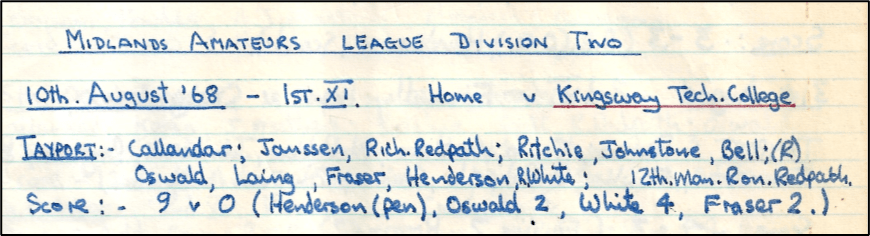 MIDLANDS AMATEURS LEAGUE DIVISION TWO
10th. August '68 - 1ST. XI. Home v Kingsway Tech. College
TAYPORT:- Callandar; Janssen, Rich. Redpath; Ritchie, Johnstone, Bell;(R)
Oswald, Laing, Fraser, Henderson, R.White; 12th. Man. Ron. Redpath.
Score:- 9 v 0 (Henderson (pen), Oswald 2, White 4, Fraser 2.)